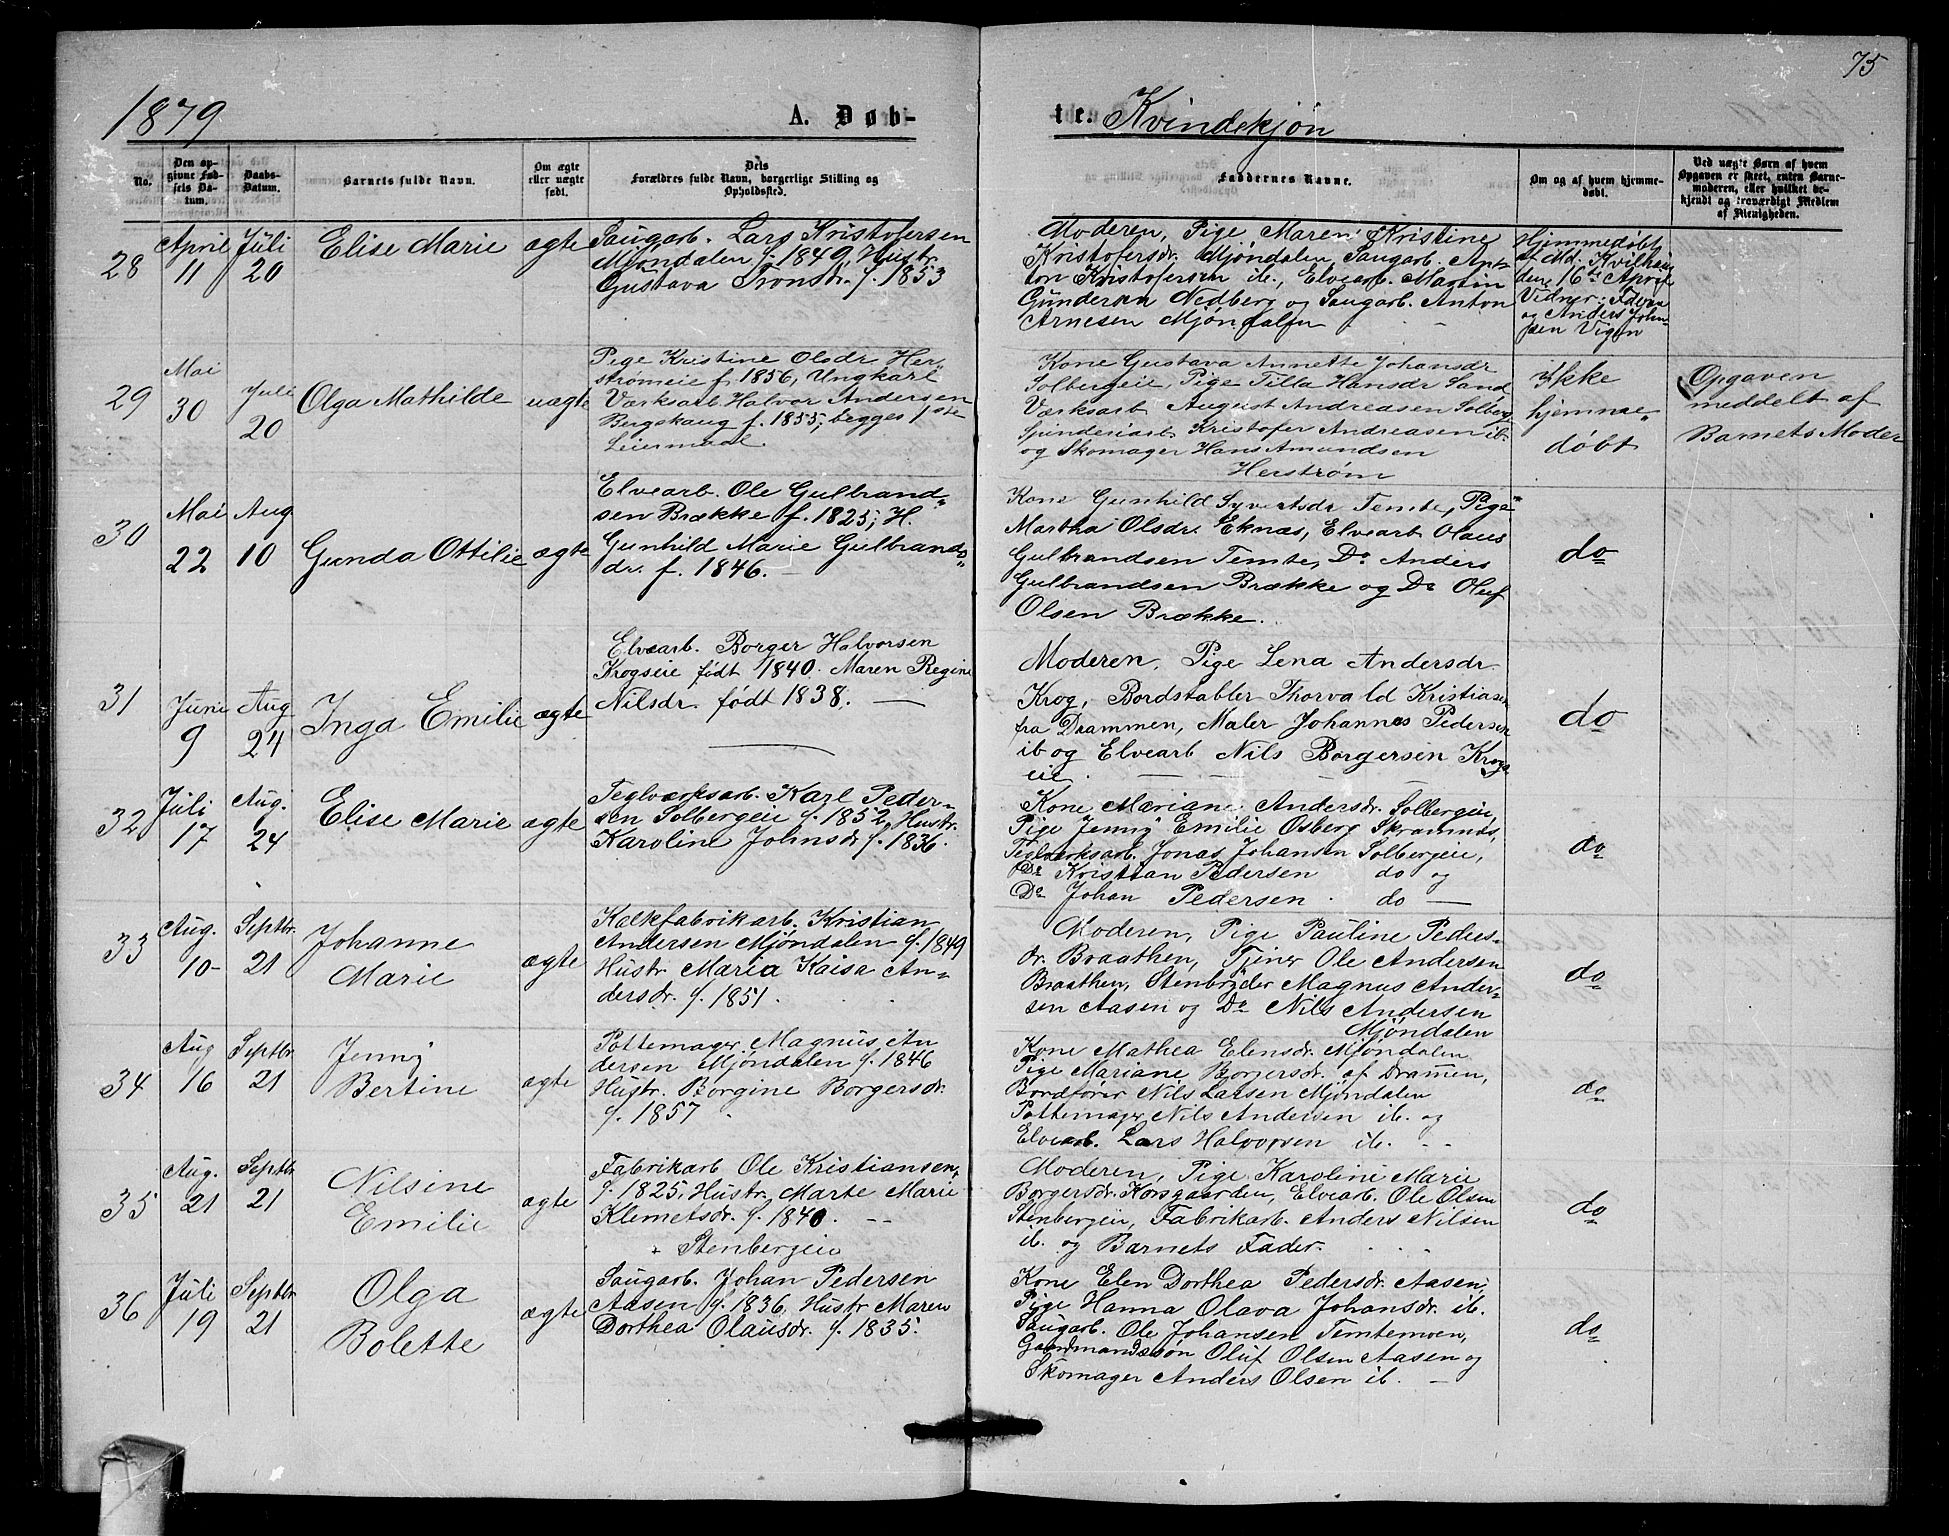 75
1879
A. Døb-
te. Kvindekjøn
No.
Den op-
givne Fød-
sels Da-
tum.
Daabs-
Datum.
Barnets fulde Navn.
Om ægte
eller uægte
født.
Dets
Forældres fulde Navn, borgerlige Stilling og
Opholdssted.
Faddernes Navne.
Om og af hvem hjemme-
døbt.
Ved uægte Børn af hvem
Opgaven er skeet, enten Barne-
moderen, eller hvilket be-
kjendt og troværdigt Medlem
af Menigheden.
28
April
11
Juli
20
Elise Marie
ægte
Saugarb. Lars Kristofersen
Mjøndalen f. 1849, Hustr.
Gustava Tronsdr. f. 1853
Moderen, Pige Maren Kristine
Kristofersdr. Mjøndalen, Saugarb. An-
ton Kristofersen ib., Elvearb. Martin
Gundersen Nedberg og Saugarb. Anton
Arnesen Mjøndalen
Hjemmedøbt
af Md.
den 16de April
Vidner: Faderen
og Anders John-
sen Vigen
29
Mai
30
Juli
20
Olga Mathilde
uægte
Pige Kristine Olsdr Her-
strømeie f. 1856, Ungkarl
Værksarb Halvor Andersen
Bergskaug f. 1855, begges 1ste
Leiermaal
Kone Gustava Annette Johansdr
Solbergeie, Pige Tilla Hansdr Sand
Værksarb August Andreasen Solberg
Spinderiarb Kristofer Andreasen ib
og Skomager Hans Amundsen
Herstrøm
Ikke
hjemme-
døbt
Opgaven
meddelt af
Barnets Moder
30
Mai
22
Aug
10
Gunda Ottilie
ægte
Elvearb. Ole Gulbrand-
sen Brække f. 1825, H.
Gunhild Marie Gulbrands-
dr. f. 1846.
Kone Gunhild Syvertsdr Temte, Pige
Martha Olsdr. Eknæs, Elvearb Olaus
Gulbrandsen Temte, Do Anders
Gulbrandsen Brække og Do Oluf
Olsen Brække.
do
31
Juni
9
Aug
24
Inga Emilie
ægte
Elvearb. Borger Halvorsen
Krogseie født 1840. Maren Regine
Nilsdr. født 1838.
Moderen, Pige Lena Andersdr.
Krog, Bordstabler Thorvald Kristiasen
fra Drammen, Maler Johannes Pedersen
ib og Elvearb Nils Borgersen Krogs
eie.
do
32
Juli
17
Aug.
24
Elise Marie
ægte
Teglværksarb. Karl Peder-
sen Solbergeie f. 1852, Hustr.
Karoline Johnsdr f. 1836.
Kone Mariane Andersdr. Solbergeie,
Pige Jenny Emilie Osberg Skramnæs,
Teglværksarb. Jonas Johansen Solbergeie,
Do Kristian Pedersen do og
Do Johan Pedersen do
do
33
Aug.
10
Septbr.
21
Johanne
Marie
ægte
Kalkfabrikarb. Kristian
Andersen Mjøndalen f. 1849
Hustr Maria Kaisa An-
dersdr. f. 1851.
Moderen, Pige Pauline Peders-
dr. Braathen, Tjener Ole Andersen
Braathen, Stenbryder Magnus Ander-
sen Aasen og Do Nils Andersen
Mjøndalen
do
34
Aug
16
Septbr
21
Jenny
Bertine
ægte
Pottemager Magnus An
dersen Mjøndalen f. 1846
Hustr. Borgine Borgersdr.
f. 1857.
Kone Mathea Elensdr. Mjøndalen
Pige Mariane Borgersdr. af Dramen,
Bordfører Nils Larsen Mjøndalen
Pottemager Nils Andersen ib. og
Elvearb. Lars Halvorsen ib.
do
35
Aug.
21
Septbr
21
Nilsine
Emilie
ægte
Fabrikarb Ole Kristiansen,
f. 1825, Hustr. Marte Marie
Klemetsdr. f. 1840.
Stenbergeie
Moderen, Pige Karoline Marie
Borgersdr. Korsgaarden, Elvearb. Ole Olsen
Stenbergeie, Fabrikarb. Anders Nilsen
ib. og Barnets Fader.
do
36
Juli
19
Septbr
21
Olga
Bolette
ægte
Saugarb. Johan Pedersen
Aasen f. 1836, Hustr Maren
Dorthea Olausdr. f. 1835.
Kone Elen Dorthea Pedersdr. Aasen,
Pige Hanna Olava Johansdr. ib.
Saugarb. Ole Johansen Temtemoen,
Gaardmandssøn Oluf Olsen Aasen og
Skomager Anders Olsen ib.
do